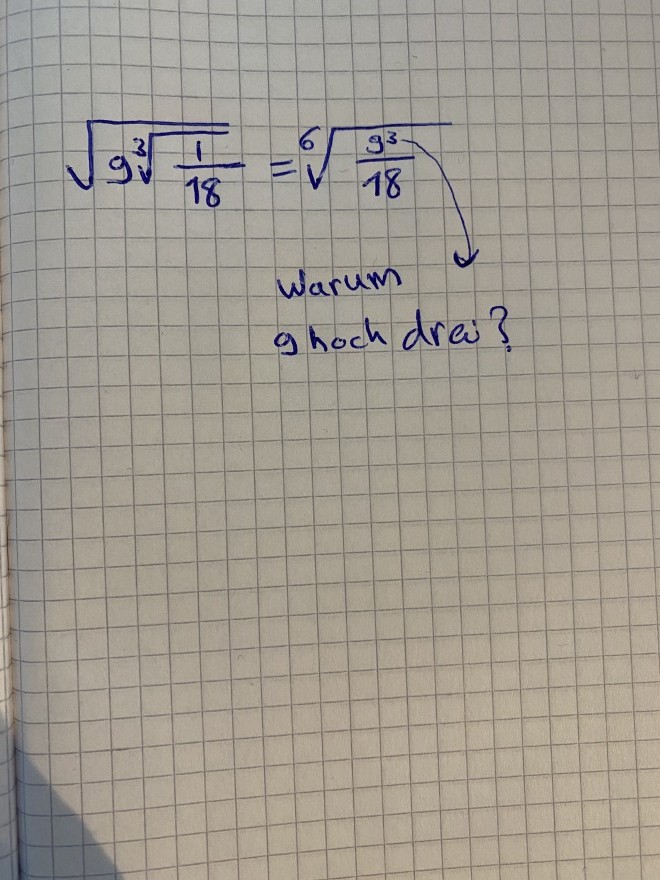 √(9∛(1/18)) = ⁶√(9³/18)
Warum
9 hoch drei?